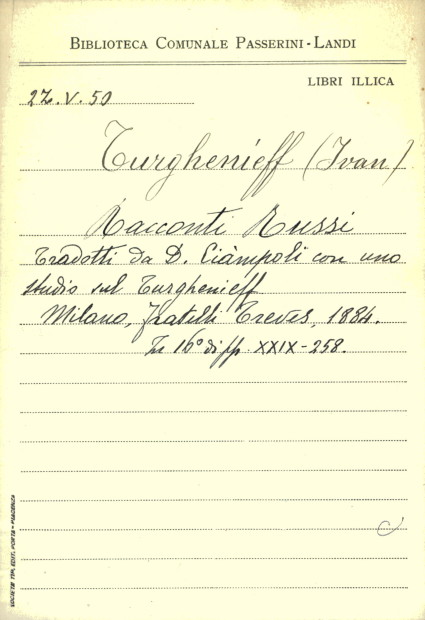 BIBLIOTECA COMUNALE PASSERINI-LANDI
LIBRI ILLICA
22.V.50
Turghenieff (Ivan)
Racconti Russi
Tradotti da D. Ciàmpoli con uno
studio sul Turghenieff
Milano, Fratelli Treves, 1884.
In 16° di pp. XXIX-258.
SOCIETÀ TIP. EDIT. PORTA - PIACENZA